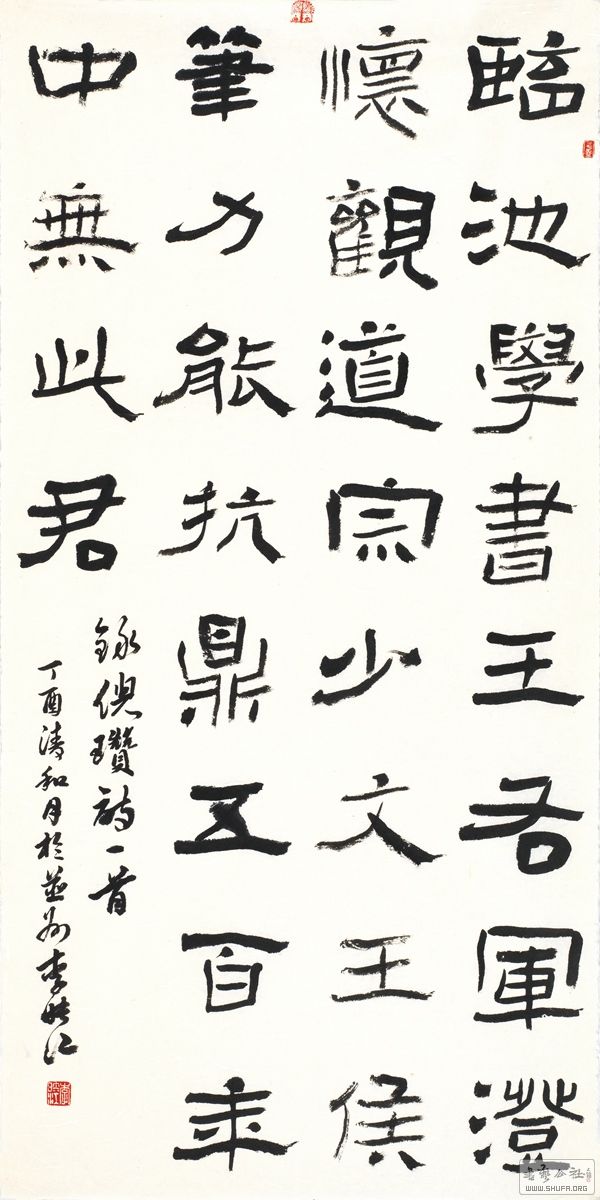 臨池學書王右軍澄
懷觀道宗少文王侯
筆力能抗鼎五百年
中無此君
錄倪瓚詩一首
丁酉清和月於並州李
WWW.SHUFA.ORG